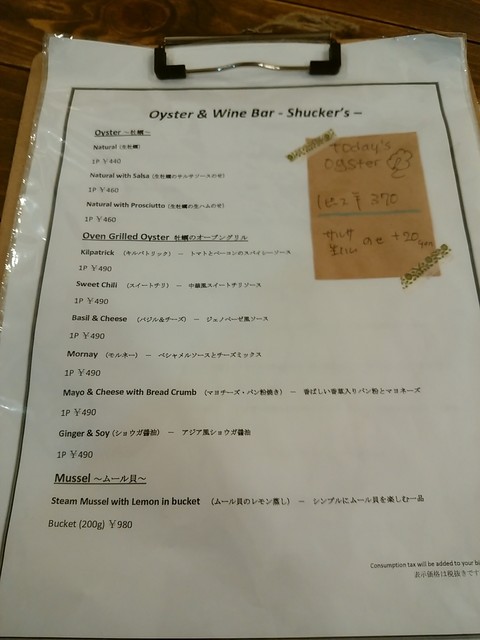 Oyster & Wine Bar - Shucker's –
Oyster ～牡蠣～
Natural (生牡蠣)
1P ￥440
Natural with Salsa (生牡蠣のサルサソースのせ)
1P ￥460
Natural with Prosciutto (生牡蠣の生ハムのせ)
1P ￥460
Oven Grilled Oyster 牡蠣のオーブングリル
Kilpatrick （キルパトリック） － トマトとベーコンのスパイシーソース
1P ￥490
Sweet Chili （スイートチリ） － 中華風スイートチリソース
1P ￥490
Basil & Cheese （バジル&チーズ） － ジェノバーゼ風ソース
1P ￥490
Mornay （モルネー） － ベシャメルソースとチーズミックス
1P ￥490
Mayo & Cheese with Bread Crumb （マヨチーズ・パン粉焼き） － 香ばしい香草入りパン粉とマヨネーズ
1P ￥490
Ginger & Soy (ショウガ醤油) － アジア風ショウガ醤油
1P ￥490
Mussel ～ムール貝～
Steam Mussel with Lemon in bucket （ムール貝のレモン蒸し） － シンプルにムール貝を楽しむ一品
Bucket (200g) ￥980
Consumption tax will be added to your bi
表示価格は税抜きです
Today's
Oyster
1ピース ￥370
サルサ
生ハム のせ +20yen